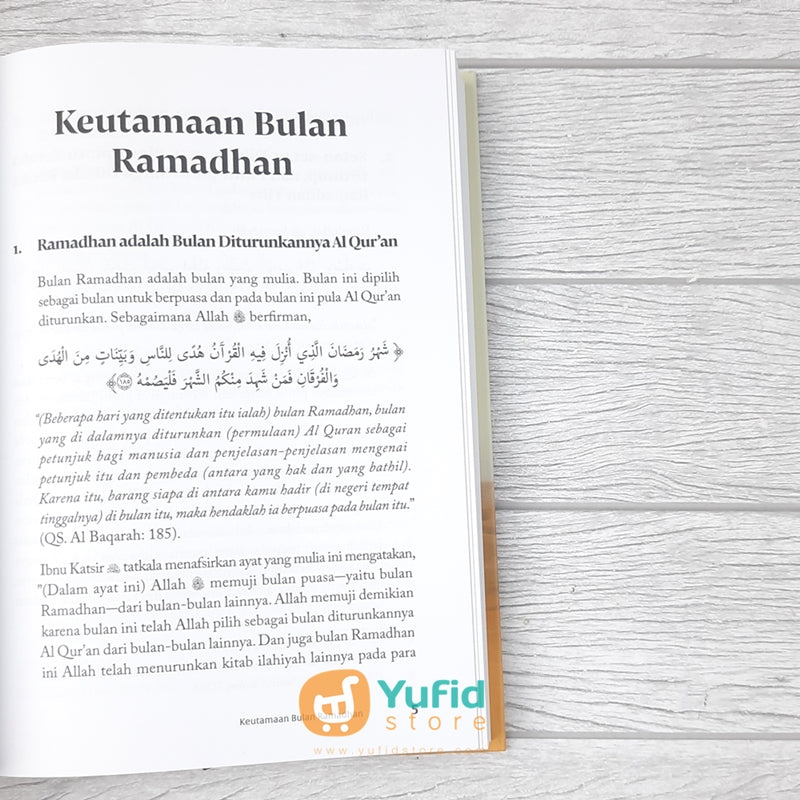 Keutamaan Bulan
Ramadhan
1. Ramadhan adalah Bulan Diturunkannya Al Qur’an
Bulan Ramadhan adalah bulan yang mulia. Bulan ini dipilih
sebagai bulan untuk berpuasa dan pada bulan ini pula Al Qur’an
diturunkan. Sebagaimana Allah ﷻ berfirman,
﴿ شَهْرُ رَمَضَانَ الَّذِي أُنْزِلَ فِيهِ الْقُرْآَنُ هُدًى لِلنَّاسِ وَبَيِّنَاتٍ مِنَ الْهُدَى
وَالْفُرْقَانِ فَمَنْ شَهِدَ مِنْكُمُ الشَّهْرَ فَلْيَصُمْهُ ١٨٥ ﴾
“(Beberapa hari yang ditentukan itu ialah) bulan Ramadhan, bulan
yang di dalamnya diturunkan (permulaan) Al Quran sebagai
petunjuk bagi manusia dan penjelasan-penjelasan mengenai
petunjuk itu dan pembeda (antara yang hak dan yang bathil).
Karena itu, barang siapa di antara kamu hadir (di negeri tempat
tinggalnya) di bulan itu, maka hendaklah ia berpuasa pada bulan itu.”
(QS. Al Baqarah: 185).
Ibnu Katsir tatkala menafsirkan ayat yang mulia ini mengatakan,
”(Dalam ayat ini) Allah ﷻ memuji bulan puasa—yaitu bulan
Ramadhan—dari bulan-bulan lainnya. Allah memuji demikian
karena bulan ini telah Allah pilih sebagai bulan diturunkannya
Al Qur’an dari bulan-bulan lainnya. Dan juga bulan Ramadhan
ini Allah telah menurunkan kitab ilahiyah lainnya pada para
Keutamaan Bulan Ramadhan 5
Yufid
store
www.yufidstore.com